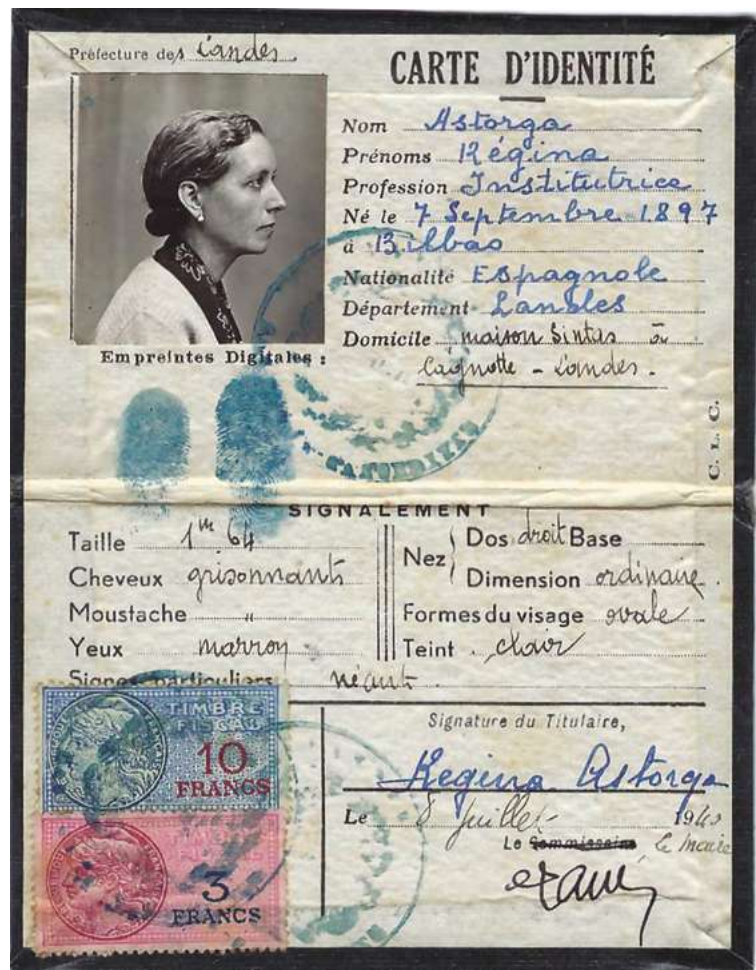 Préfecture des Landes.
CARTE D'IDENTITÉ
Nom Astorga
Prénoms Régina
Profession Institutrice
Né le 7 Septembre 1897
à Bilbao
Nationalité Espagnole
Département Landes
Domicile maison Sintas à
Cagnotte - Landes.
Empreintes Digitales :
C. L. C.
SIGNALEMENT
Taille 1m 64
Cheveux grisonnants
Moustache "
Yeux marron
Signes particuliers néant.
Nez Dos droit Base
Dimension ordinaire.
Formes du visage ovale
Teint clair
TIMBRE
FISCAL
10
FRANCS
3
FRANCS
Signature du Titulaire,
Regina Astorga
Le 8 Juillet 1940
Le Commissaire Le Maire